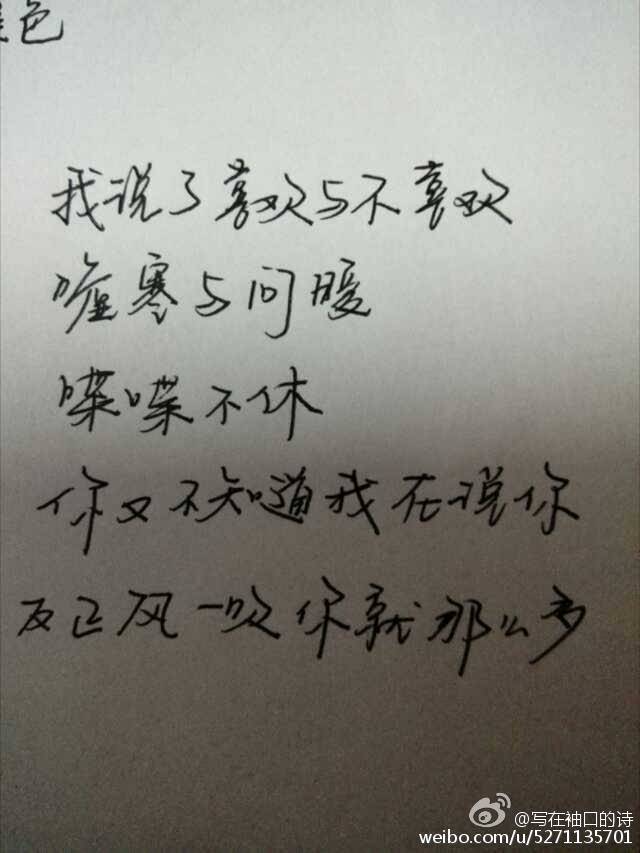 色
我说了喜欢与不喜欢
嘘寒与问暖
喋喋不休
你又不知道我在说你
反正风一吹你就那么多
@写在袖口的诗
weibo.com/u/5271135701